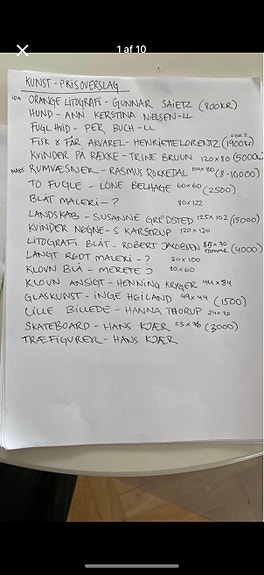 1 af 10
KUNST - PRISOVERSLAG
ORANGE LITOGRAFI - GUNNAR SAIETZ (800KR)
HUND - ANN KERSTINA NIELSEN - LL
FUGL HVID - PER BUCH - LL
FISK & FÅR AKVAREL - HENRIETTE LORENTZ (1900KR)
KVINDER PÅ RÆKKE - TRINE BRUUN 120x80 (5000
RUMVÆSNER - RASMUS ROKKEDAL 100x100 (8-10000)
TO FUGLE - LONE BELHAGE 60x60 (2500)
BLÅT MALERI - ? 80x122
LANDSKAB - SUSANNE GREDSTED 125x102 (15000)
KVINDER NØGNE - S KARSTRUP 120x120
LITOGRAFI BLÅT - ROBERT JACOBSEN (4000)
LANGT RØDT MALERI - ? 30x100
KLOVN BLÅ - MERETE 80x60
KLOVN ANSIGT - HENNING KRYGER 44x84
GLASKUNST - INGE HØILAND 49x44 (1500)
LILLE BILLEDE - HANNA THORUP 24x20
SKATEBOARD - HANS KJÆR (3000)
TRÆFIGURER - HANS KJÆR